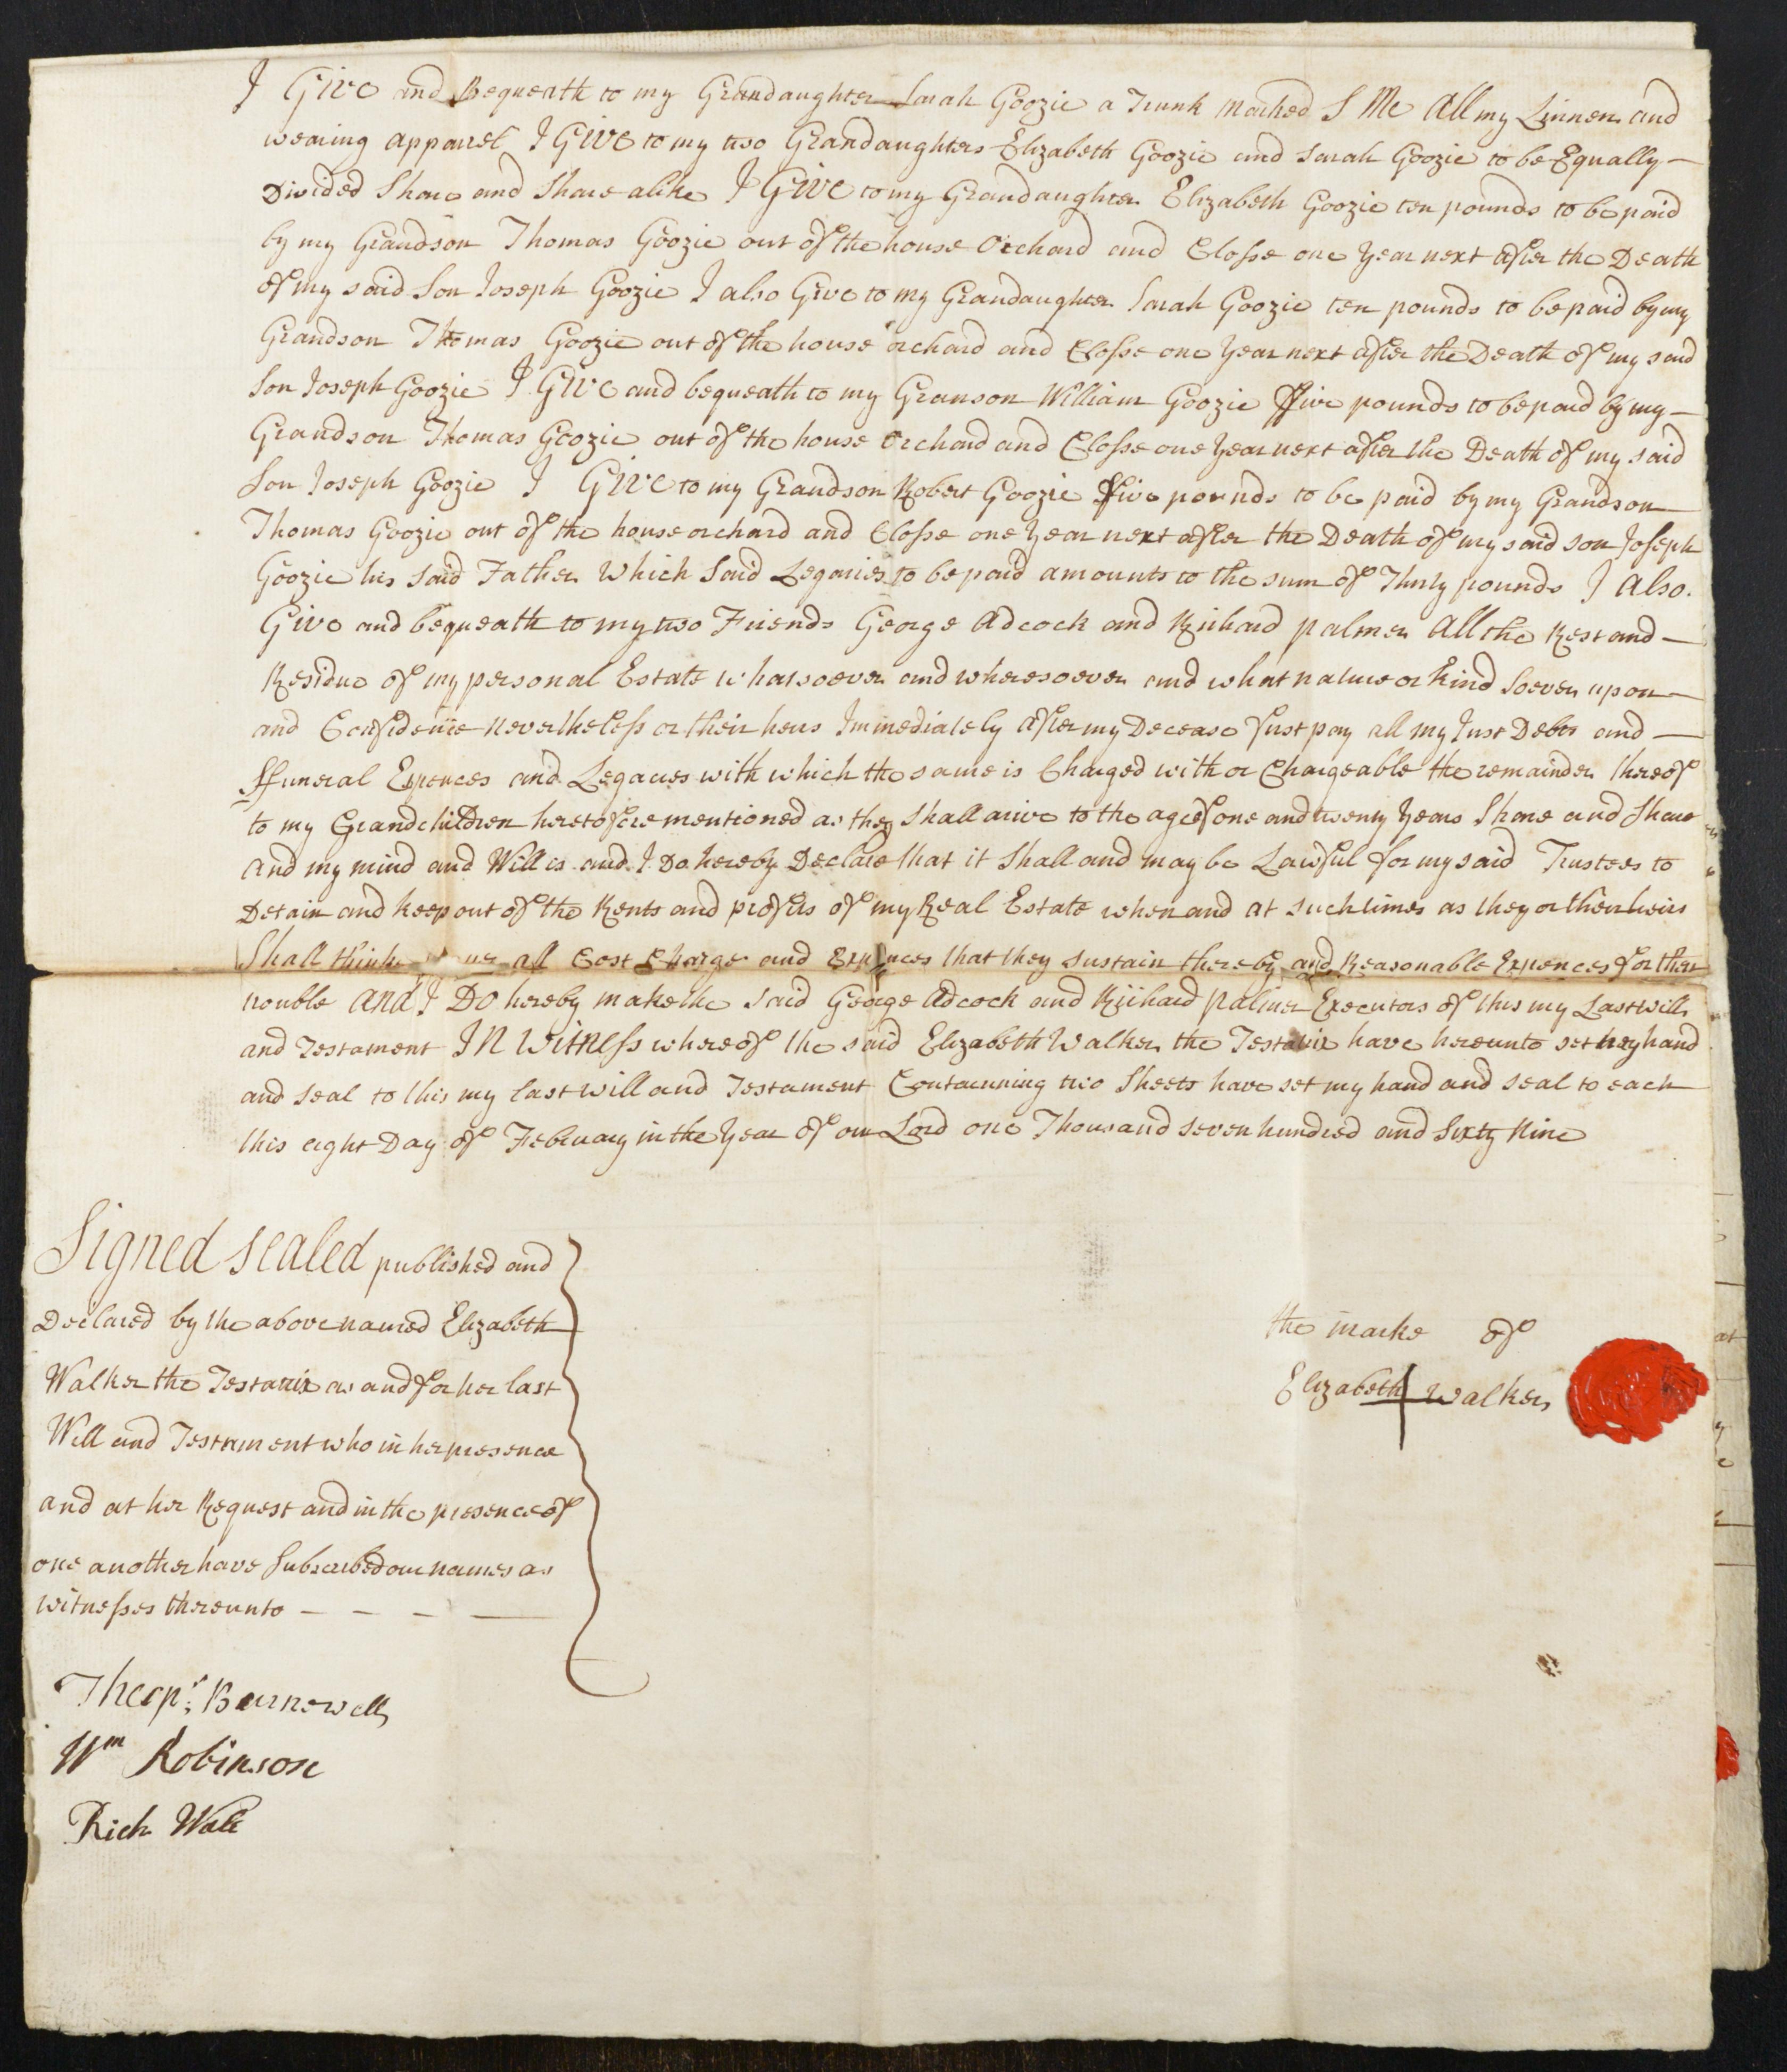 I Give and Bequeath to my Grandaughter Sarah Goozie a Trunk Marked S M All my Linnen and
wearing apparel I Give to my two Grandaughters Elizabeth Goozie and Sarah Goozie to be Equally —
Divided Share and Share alike I Give to my Grandaughter Elizabeth Goozie ten pounds to be paid
by my Grandson Thomas Goozie out of the house Orchard and Closse one Year next after the Death
of my said Son Joseph Goozie I also Give to my Grandaughter Sarah Goozie ten pounds to be paid by my
Grandson Thomas Goozie out of the house orchard and Closse one Year next after the Death of my said
Son Joseph Goozie I Give and bequeath to my Granson William Goozie ffive pounds to be paid by my —
Grandson Thomas Goozie out of the house Orchard and Closse one Year next after the Death of my said
Son Joseph Goozie I Give to my Grandson Robert Goozie ffive pounds to be paid by my Grandson
Thomas Goozie out of the house orchard and Closse one Year next after the Death of my said son Joseph
Goozie his said Father Which Said Legacies to be paid amounts to the sum of Thirty pounds I Also.
Give and bequeath to my two Friends George Adcock and Richard palmer All the Rest and —
Residue of my personal Estate whatsoever and wheresoever and what nature or kind Soever upon —
and Confidence Nevertheless or their heirs Immediately After my Decease first pay all my Just Debts and —
ffuneral Expences and Legacies with which the same is Charged with or Chargeable the remainder thereof
to my Grandchildren heretofore mentioned as they shall arive to the age of one and twenty Years Share and Share
And my mind and Will is and I Do hereby Declare that it Shall and may be Lawful for my said Trustees to
Detain and keep out of the Rents and profits of my Real Estate when and at such times as they or their heirs
Shall think all Cost Charge and Expences that they sustain thereby and Reasonable Expences for their
trouble And I Do hereby make the said George Adcock and Richard palmer Executors of this my Last will
and Testament In Witness whereof the said Elizabeth Walker the Testatrix have hereunto set my hand
and seal to this my last will and Testament Contacining two Sheets have set my hand and seal to each
this eight Day of February in the Year of our Lord one Thousand seven hundred and Sixty Nine
Signed sealed published and
Declared by the above named Elizabeth
Walker the Testatrix as and for her last
Will and Testament who in her presence
and at her Request and in the presence of
one another have Subscribed our names as
witnesses thereunto — — — —
the marke of
Elizabeth Walker
Theop.s Burnewell
Wm Robinson
Rich Wale